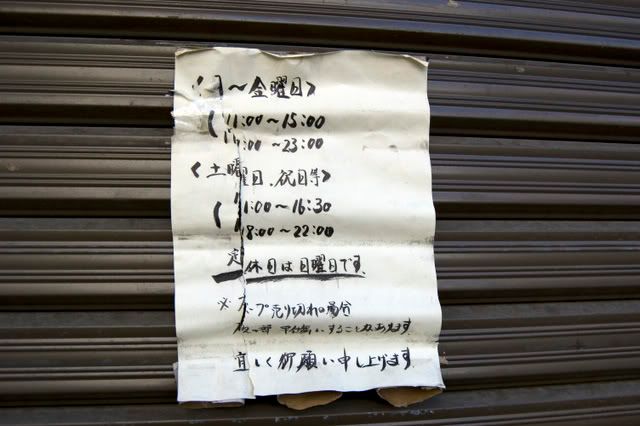 〈月～金曜日〉
11:00～15:00
17:00～23:00
〈土曜日、祝日等〉
11:00～16:30
18:00～22:00
定休日は日曜日です。
※スープ売り切れの場合
することがあります
宜しく御願い申し上げます